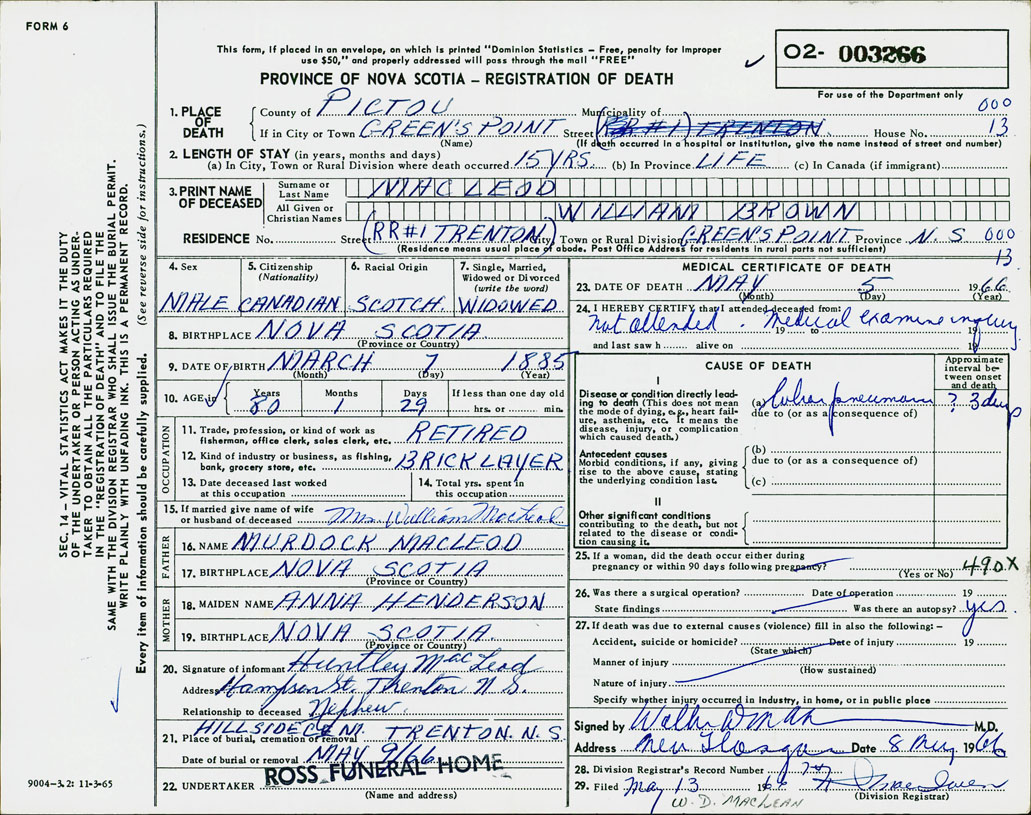 FORM 6
This form, if placed in an envelope, on which is printed "Dominion Statistics – Free, penalty for improper
use $50," and properly addressed will pass through the mail "FREE"
O2- 003266
PROVINCE OF NOVA SCOTIA – REGISTRATION OF DEATH
For use of the Department only
000
1. PLACE OF DEATH County of PICTOU Municipality of
If in City or Town GREEN'S POINT Street (RR #1) TRENTON House No. 13
(Name) (If death occurred in a hospital or institution, give the name instead of street and number)
2. LENGTH OF STAY (in years, months and days)
(a) In City, Town or Rural Division where death occurred 15 YRS. (b) In Province LIFE (c) In Canada (if immigrant)
3. PRINT NAME OF DECEASED Surname or Last Name MACLEOD
All Given or Christian Names WILLIAM BROWN
RESIDENCE No. Street (RR#1 TRENTON) City, Town or Rural Division GREEN'S POINT Province N.S. 000
(Residence means usual place of abode. Post Office Address for residents in rural parts not sufficient)
13
4. Sex 5. Citizenship (Nationality) 6. Racial Origin 7. Single, Married, Widowed or Divorced (write the word)
MALE CANADIAN SCOTCH. WIDOWED
8. BIRTHPLACE NOVA SCOTIA
(Province or Country)
9. DATE OF BIRTH MARCH 7 1885
(Month) (Day) (Year)
10. AGE in Years Months Days If less than one day old
80 1 29 hrs. or min.
OCCUPATION
11. Trade, profession, or kind of work as fisherman, office clerk, sales clerk, etc. RETIRED
12. Kind of industry or business, as fishing, bank, grocery store, etc. BRICKLAYER
13. Date deceased last worked at this occupation 14. Total yrs. spent in this occupation
15. If married give name of wife or husband of deceased Mrs. William MacLeod
FATHER
16. NAME MURDOCK MACLEOD
17. BIRTHPLACE NOVA SCOTIA
(Province or Country)
MOTHER
18. MAIDEN NAME ANNA HENDERSON
19. BIRTHPLACE NOVA SCOTIA.
(Province or Country)
20. Signature of informant Huntley MacLeod
Address Hampson St. Trenton N.S.
Relationship to deceased Nephew.
21. Place of burial, cremation or removal HILLSIDE CEM. TRENTON. N.S.
Date of burial or removal MAY 9/66
22. UNDERTAKER ROSS FUNERAL HOME
(Name and address)
MEDICAL CERTIFICATE OF DEATH
23. DATE OF DEATH MAY 5 1966
(Month) (Day) (Year)
24. I HEREBY CERTIFY that I attended deceased from:
not attended. Medical examiner inquiry
19 to 19
and last saw h alive on 19
CAUSE OF DEATH
Approximate interval between onset and death
I
Disease or condition directly leading to death (This does not mean the mode of dying, e.g., heart failure, asthenia, etc. It means the disease, injury, or complication which caused death.)
(a) Lobar pneumonia ? 3 days
due to (or as a consequence of)
Antecedent causes
Morbid conditions, if any, giving rise to the above cause, stating the underlying condition last.
(b)
due to (or as a consequence of)
(c)
II
Other significant conditions
contributing to the death, but not related to the disease or condition causing it.
25. If a woman, did the death occur either during
pregnancy or within 90 days following pregnancy? (Yes or No) 490X
26. Was there a surgical operation? Date of operation 19
State findings Was there an autopsy? yes.
27. If death was due to external causes (violence) fill in also the following: –
Accident, suicide or homicide? Date of injury 19
(State which)
Manner of injury
(How sustained)
Nature of injury
Specify whether injury occurred in industry, in home, or in public place
Signed by M.D.
Address New Glasgow Date 8 May 1966
28. Division Registrar's Record Number 747
29. Filed May 13 1966
(Division Registrar)
W. D. MACLEAN
SEC. 14 – VITAL STATISTICS ACT MAKES IT THE DUTY
OF THE UNDERTAKER OR PERSON ACTING AS UNDER-
TAKER TO OBTAIN ALL THE PARTICULARS REQUIRED
IN THE "REGISTRATION OF DEATH" AND TO FILE THE
SAME WITH THE DIVISION REGISTRAR WHO SHALL ISSUE THE BURIAL PERMIT.
WRITE PLAINLY WITH UNFADING INK. THIS IS A PERMANENT RECORD.
Every item of information should be carefully supplied. (See reverse side for instructions.)
9004-3.2: 11-3-65